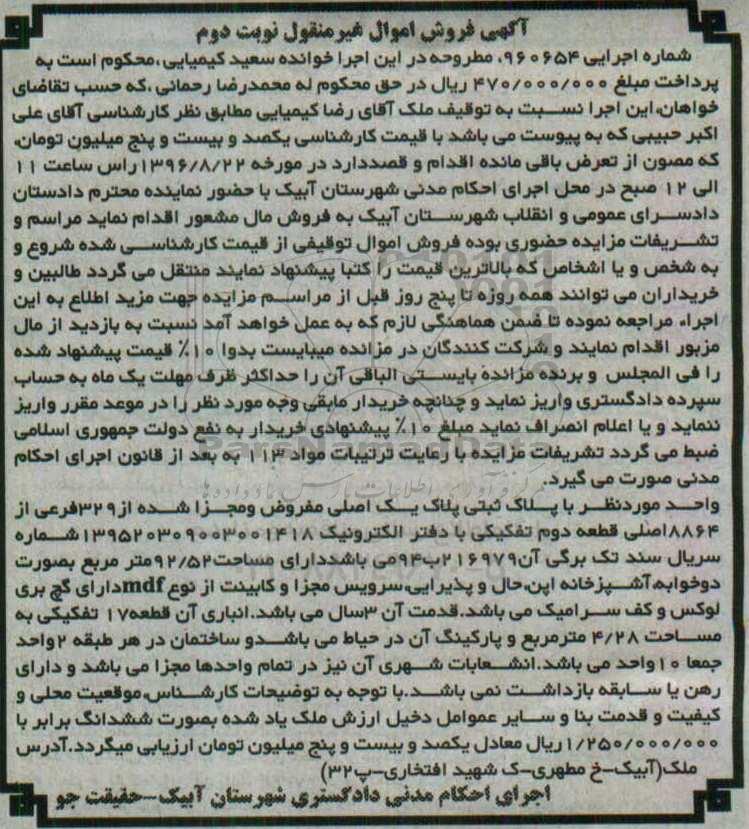 آگهی فروش اموال غیرمنقول نوبت دوم
شماره اجرایی ۹۶۰۶۵۴، مطروحه در این اجرا خوانده سعید کیمیایی، محکوم است به
پرداخت مبلغ ۴۷۰/۰۰۰/۰۰۰ ریال در حق محکوم له محمدرضا رحمانی ،که حسب تقاضای
خواهان،این اجرا نسبت به توقیف ملک آقای رضا کیمیایی مطابق نظر کارشناسی آقای علی
اکبر حبیبی که به پیوست می باشد با قیمت کارشناسی یکصد و بیست و پنج میلیون تومان،
که مصون از تعرض باقی مانده اقدام و قصددارد در مورخه ۱۳۹۶/۸/۲۲راس ساعت ۱۱
الی ۱۲ صبح در محل اجرای احکام مدنی شهرستان آبیک با حضور نماینده محترم دادستان
دادسرای عمومی و انقلاب شهرستان آبیک به فروش مال مشعور اقدام نماید مراسم و
تشریفات مزایده حضوری بوده فروش اموال توقیفی از قیمت کارشناسی شده شروع و
به شخص و یا اشخاص که بالاترین قیمت را کتبا پیشنهاد نمایند منتقل می گردد طالبین و
خریداران می توانند همه روزه تا پنج روز قبل از مراسم مزایده جهت مزید اطلاع به این
اجراء مراجعه نموده تا ضمن هماهنگی لازم که به عمل خواهد آمد نسبت به بازدید از مال
مزبور اقدام نمایند و شرکت کنندگان در مزانده میبایست بدوا ۱۰٪ قیمت پیشنهاد شده
را فی المجلس و برنده مزانده بایستی الباقی آن را حداکثر ظرف مهلت یک ماه به حساب
سپرده دادگستری واریز نماید و چنانچه خریدار مابقی وجه مورد نظر را در موعد مقرر واریز
ننماید و یا اعلام انصراف نماید مبلغ ۱۰٪ پیشنهادی خریدار به نفع دولت جمهوری اسلامی
ضبط می گردد تشریفات مزایده با رعایت ترتیبات مواد ۱۱۳ به بعد از قانون اجرای احکام
مدنی صورت می گیرد.
واحد موردنظر با پلاک ثبتی پلاک یک اصلی مفروض ومجزا شده از۳۲۹فرعی از
۸۸۶۴اصلی قطعه دوم تفکیکی با دفتر الکترونیک ۱۳۹۵۲۰۳۰۹۰۰۳۰۰۱۴۱۸شماره
سریال سند تک برگی آن۲۱۶۹۷۹ب۹۴می باشددارای مساحت۹۲/۵۲متر مربع بصورت
دوخوابه،آشپزخانه اپن،حال و پذیرایی،سرویس مجزا و کابینت از نوع mdfدارای گچ بری
لوکس و کف سرامیک می باشد.قدمت آن ۳سال می باشد.انباری آن قطعه۱۷ تفکیکی به
مساحت ۴/۲۸ مترمربع و پارکینگ آن در حیاط می باشدو ساختمان در هر طبقه ۲واحد
جمعا ۱۰واحد می باشد.انشعابات شهری آن نیز در تمام واحدها مجزا می باشد و دارای
رهن یا سابقه بازداشت نمی باشد.با توجه به توضیحات کارشناس،موقعیت محلی و
کیفیت و قدمت بنا و سایر عموامل دخیل ارزش ملک یاد شده بصورت ششدانگ برابر با
۱/۲۵۰/۰۰۰/۰۰۰ریال معادل یکصد و بیست و پنج میلیون تومان ارزیابی میگردد.آدرس
ملک(آبیک-خ مطهری-ک شهید افتخاری-پ۳۲)
اجرای احکام مدنی دادگستری شهرستان آبیک-حقیقت جو